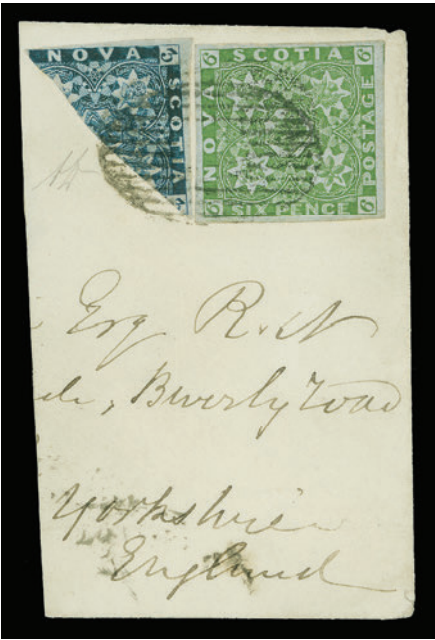 NOVA SCOTIA
SCOTIA NOVA POSTAGE
6 6
SIX PENCE
6 6
Esq R.N
Beverly Road
Yorkshire
England